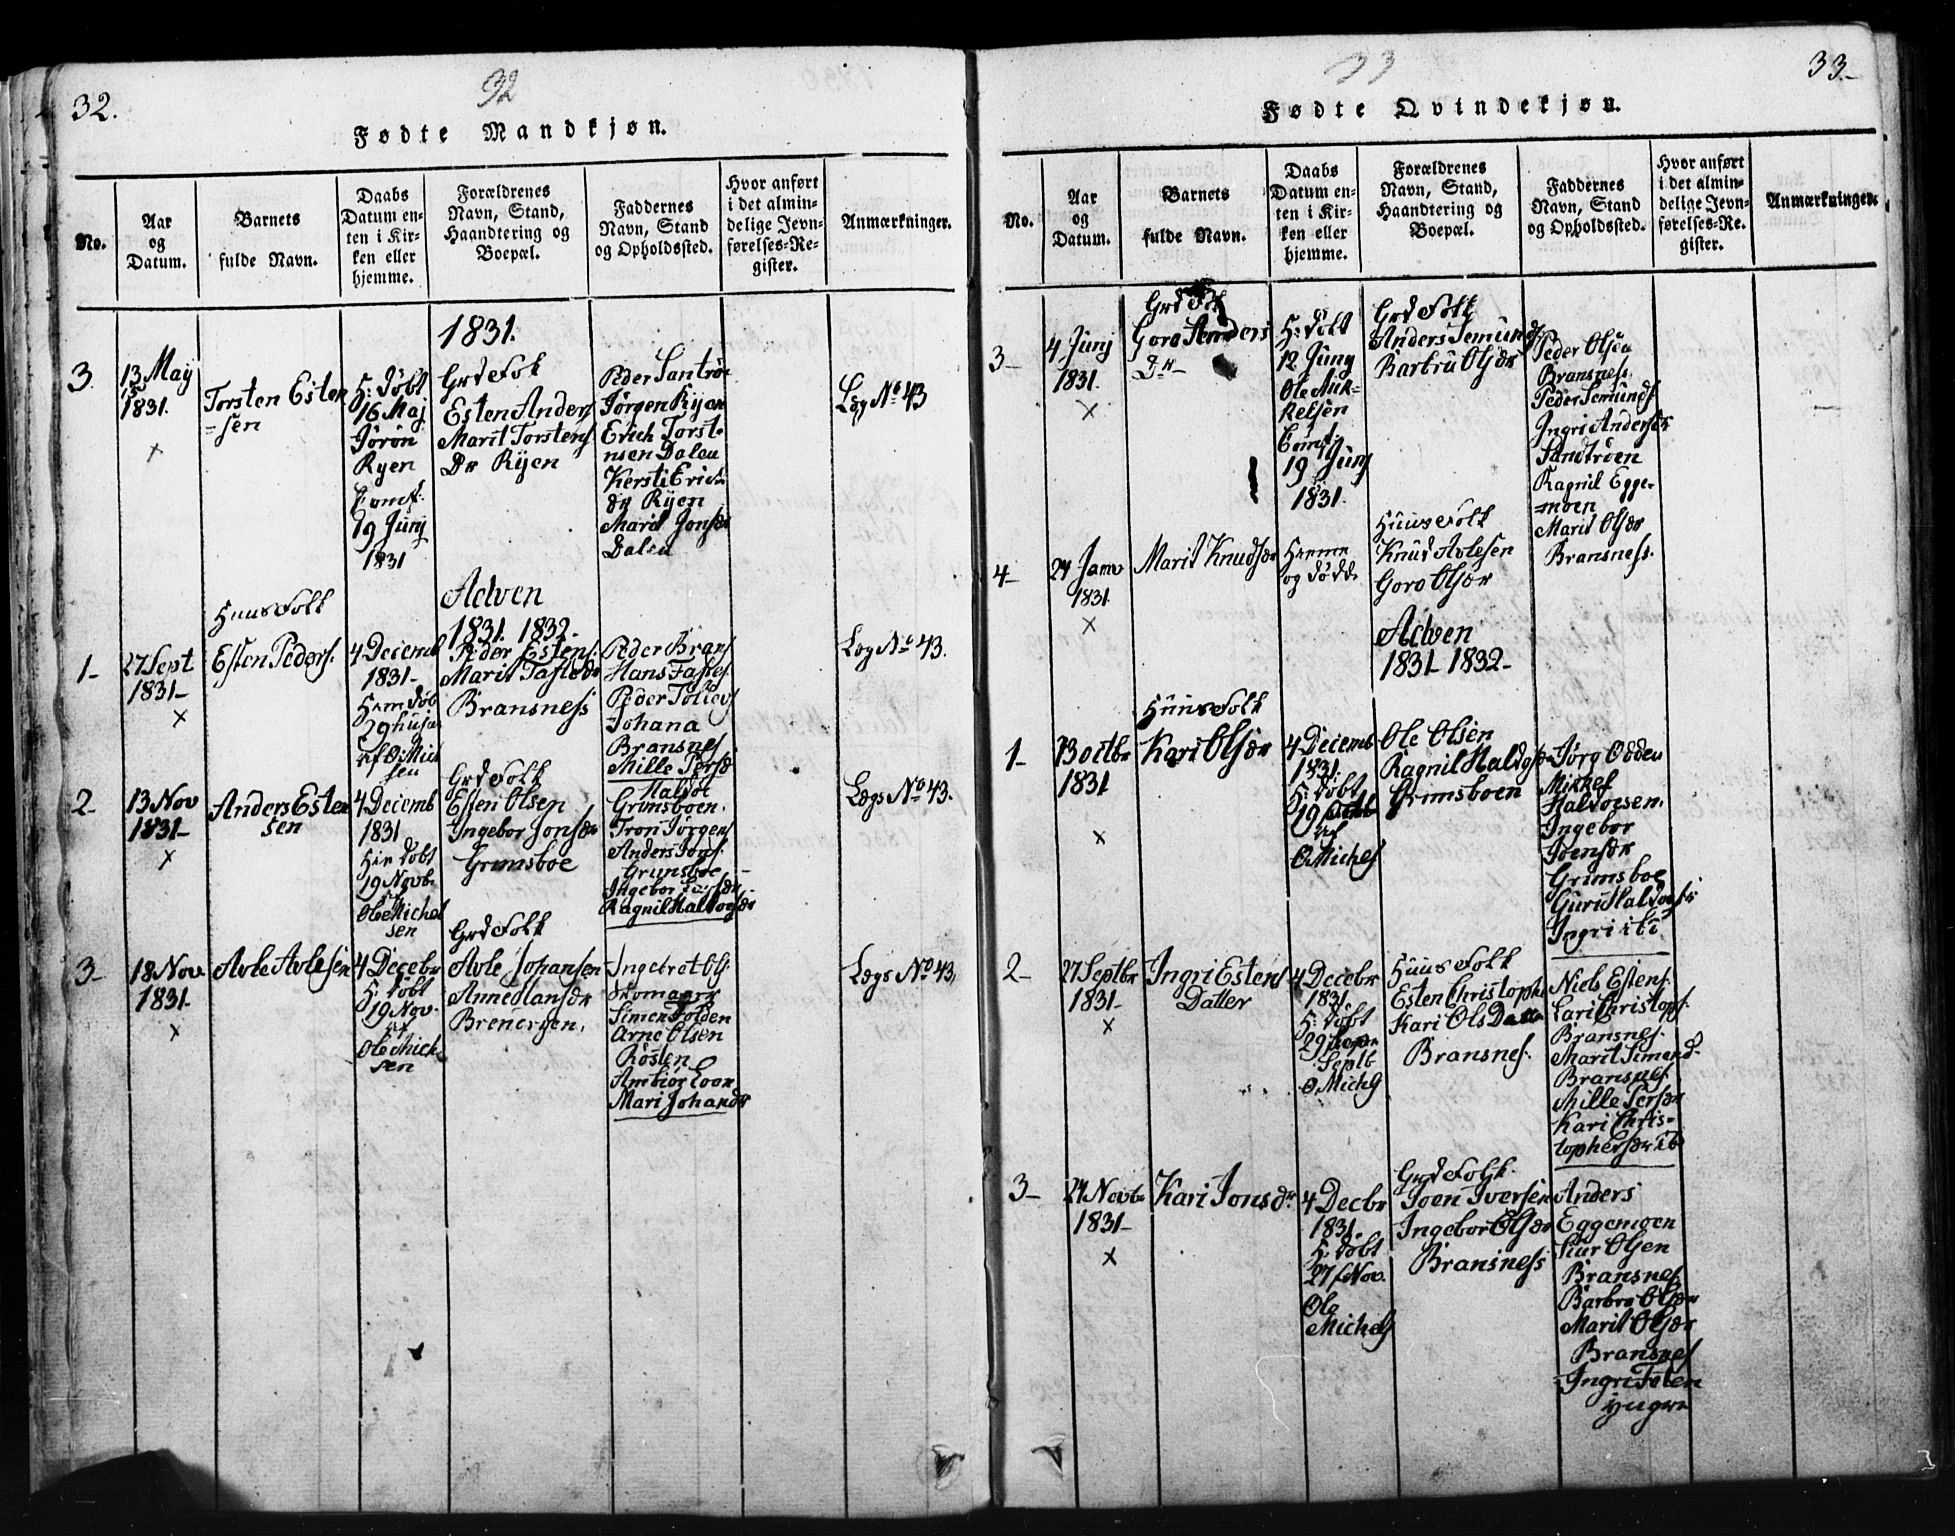 32.
32
Fødte Mandkjøn.
No.
Aar
og
Datum.
Barnets
fulde Navn.
Daabs
Datum en-
ten i Kir-
ken eller
hjemme.
Forældrenes
Navn, Stand,
Haandtering og
Boepæl.
Faddernes
Navn, Stand
og Opholdssted.
Hvor anført
i det almin-
delige Jevn-
førelses-Re-
gister.
Anmærkninger.
1831.
3.
13 May
1831.
×
Torsten Esten
=sen
H: Døbt
16 Maj
Jørøn
Ryen
Comf:
19 Junj
1831
Grd Folk
Esten Anders
Marit Torstens
Dr Rÿen
Peder Santrøe
Jørgen Ryen
Erich Torst-
nsen Dalen
Kersti Erich
dr Rÿen
Marit Jonsdr
Dalen
Læg No 43
Adven
1831. 1832-
1-
27 Sept
1831-
×
Huus Folk
Esten Peders.
4 Decemb
1831-
Hiem døb
29 husa
af O: Mich
sen
Peder Estens.
Marit Taftedr
Bransness
Peder Brans
Hans
Peder Tollevs
Johana
Bransnes
Mille Persd
Læg No 43.
2-
13 Nov
1831-
×
Anders Esten
sen
4 Decemb
1831
Hie døbt
19 Novb.
Ole Michel
sen
Grd Folk
Esten Olsen
Ingebor Jonsdr
Grimsboe
Haldoe
Grimsboen.
Tron Jørgens
Anders Jons.
Grimsboe-
Ingebor
Ragnil Haldorsdr
Lægs No 43.
3-
18 Nov.
1831-
×
Avle Avlesen
4 Decebr
H: Døbt
19 Nov.
af
Ole Mich
sen
Grd Folk
Avle Johansen
Anne Hansdr
Brenergen.
Ingebret Ols.
Skomager
Simen Folden
Arne Olsen
Røsten
Ambiør Loen
Mari Johandr
Lægs No 43
33
33-
Fødte Qvindekjøn.
No.
Aar
og
Datum.
Barnets
fulde Navn.
Daabs
Datum en-
ten i Kir-
ken eller
hjemme.
Forældrenes
Navn, Stand,
Haandtering og
Boepæl.
Faddernes
Navn, Stand
og Opholdssted.
Hvor anført
i det almin-
delige Jevn-
førelses-Re-
gister.
Anmærkninger.
3-
4 Junj
1831.
×
Grd Folk
Goro Anders
Dr-
H: døbt
12 Juny
Ole Mik-
kelsen
Comf:
19 Junj
1831.
Grd Folk
Anders Semunds
Barbru Olsdr
Peder Olsen
Bransness.
Peder Semunds.
Ingri Andersdr
Sandtrøen
Ragnil Egge-
moen
Marit Olsdr
Bransness.
4-
24 Janv
1831.
×
Marit Knudsdr
Hieme
og døde
Huus Folk
Knud Avlesen
Goro Olsdr
Adven
1831- 1832-
1-
13 octbr
1831
×
Huus Folk
Kari Olsdr
4 Decemb
1831.
H: døbt
19
af
O Miches
Ole Olsen
Ragnil Haldorsdr
Grimsboen
Jørg Odden
Mikkel
Haldorsen.
Ingebor
Joensdr
Grimsboe
Guri Haldorsdr
Ingri ibi
2-
27 Septbr
1831-
×
Ingri Estens
Datter
4 Decebr
1831.
H: døbt
29
Septb
O Michs
Huus Folk
Esten Christophe
Kari Ols Datter
Bransnes.
Niels Estens.
Lari Christops.
Bransnes.
Marit Simend-
Bransnes
Mille Persdr
Kari Chris-
tophersdr ib
3-
24 Novbr
1831-
×
Kari Jonsdr.
4 Decbr
1831.
H: døbt
27 Nov.
Ole
Michels
Grd Folk.
Joen Iversen
Ingebor Olsdr
Bransness
Anders
Eggemoen
Siur Olsen
Bransnes
Barbro Olsdr
Marit Olsdr
Bransnes
Ingri